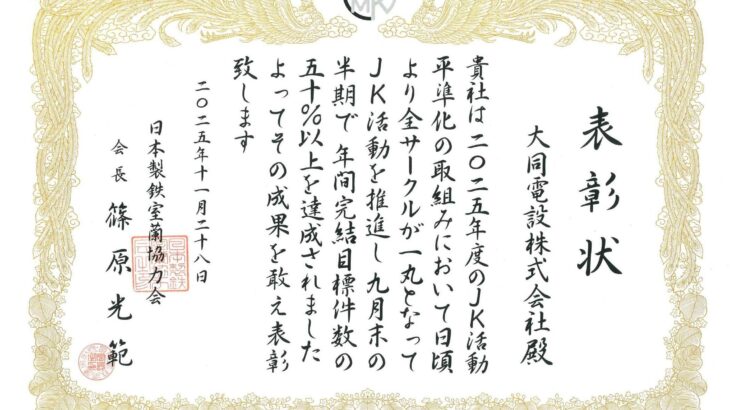 表彰状
大同電設株式会社殿
貴社は二〇二五年度のJK活動
平準化の取組みにおいて日頃
より全サークルが一丸となって
JK活動を推進し九月末の
半期で年間完結目標件数の
五十%以上を達成されました
よってその成果を敢え表彰
致します
二〇二五年十一月二十八日
日本製鉄室蘭協力会
会長 篠原光範